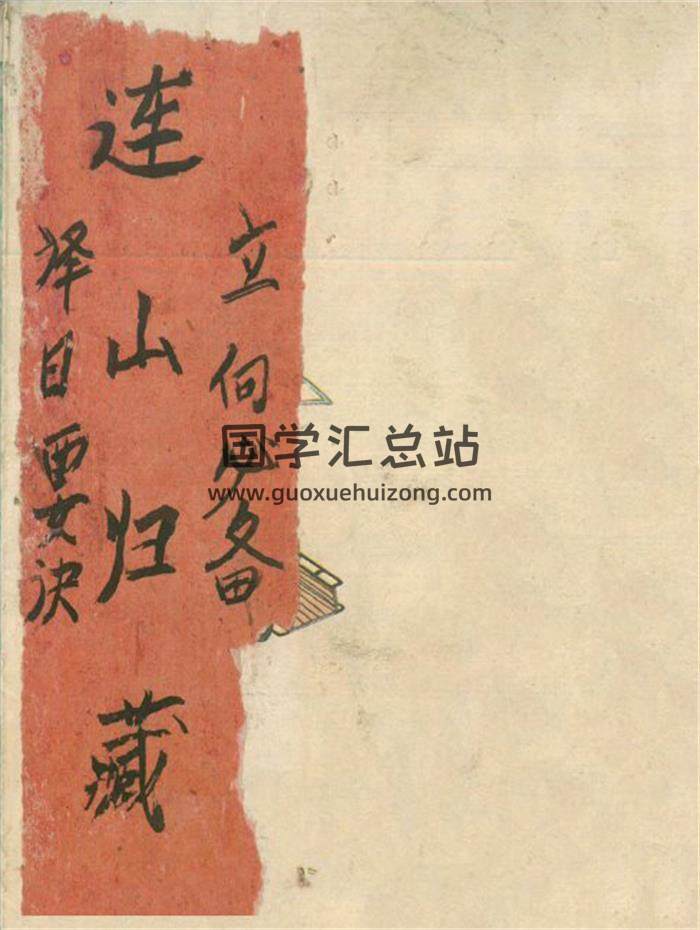 立向必备
连山归藏
择日要诀
国学汇总站
www.guoxuehuizong.com